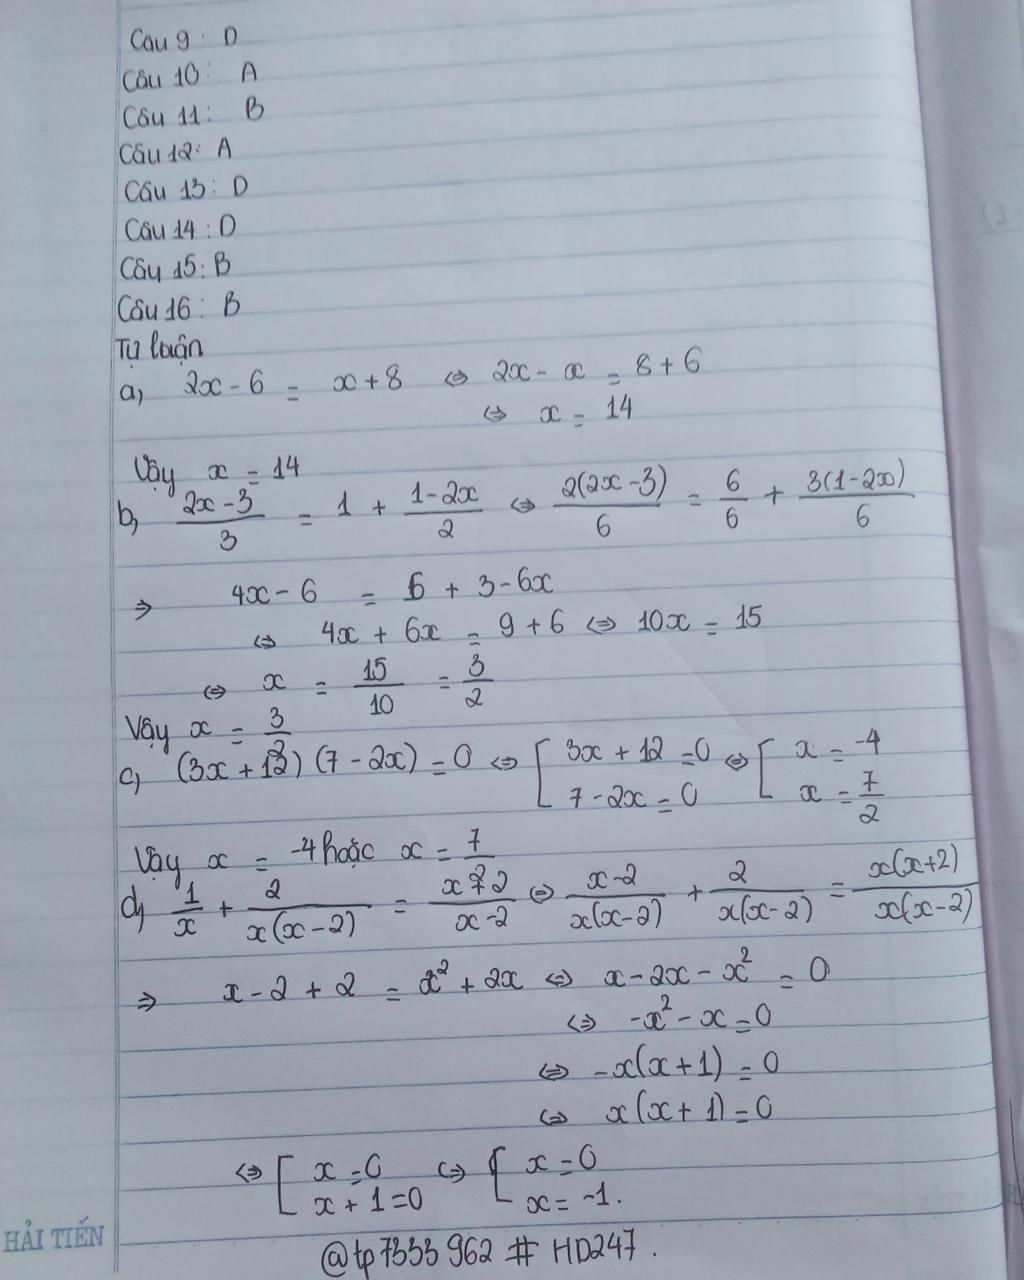 Câu 9: D
Câu 10: A
Câu 11: B
Câu 12: A
Câu 13: D
Câu 14: D
Câu 15: B
Câu 16: B
Tự luận
a) 2x - 6 = x + 8 ⇔ 2x - x = 8 + 6
⇔ x = 14
Vậy x = 14
b) (2x - 3)/3 = 1 + (1 - 2x)/2 ⇔ 2(2x - 3)/6 = 6/6 + 3(1 - 2x)/6
⇒ 4x - 6 = 6 + 3 - 6x
⇔ 4x + 6x = 9 + 6 ⇔ 10x = 15
⇔ x = 15/10 = 3/2
Vậy x = 3/2
c) (3x + 12)(7 - 2x) = 0 ⇔ [ 3x + 12 = 0 ⇔ [ x = -4
7 - 2x = 0 x = 7/2
Vậy x = -4 hoặc x = 7/2
d) 1/x + 2/(x(x - 2)) = (x + 2)/(x - 2) ⇔ (x - 2)/(x(x - 2)) + 2/(x(x - 2)) = x(x + 2)/(x(x - 2))
⇒ x - 2 + 2 = x² + 2x ⇔ x - 2x - x² = 0
⇔ -x² - x = 0
⇔ -x(x + 1) = 0
⇔ x(x + 1) = 0
⇔ [ x = 0 ⇔ [ x = 0
x + 1 = 0 x = -1.
HẢI TIẾN
@tp7333962 # HD247.